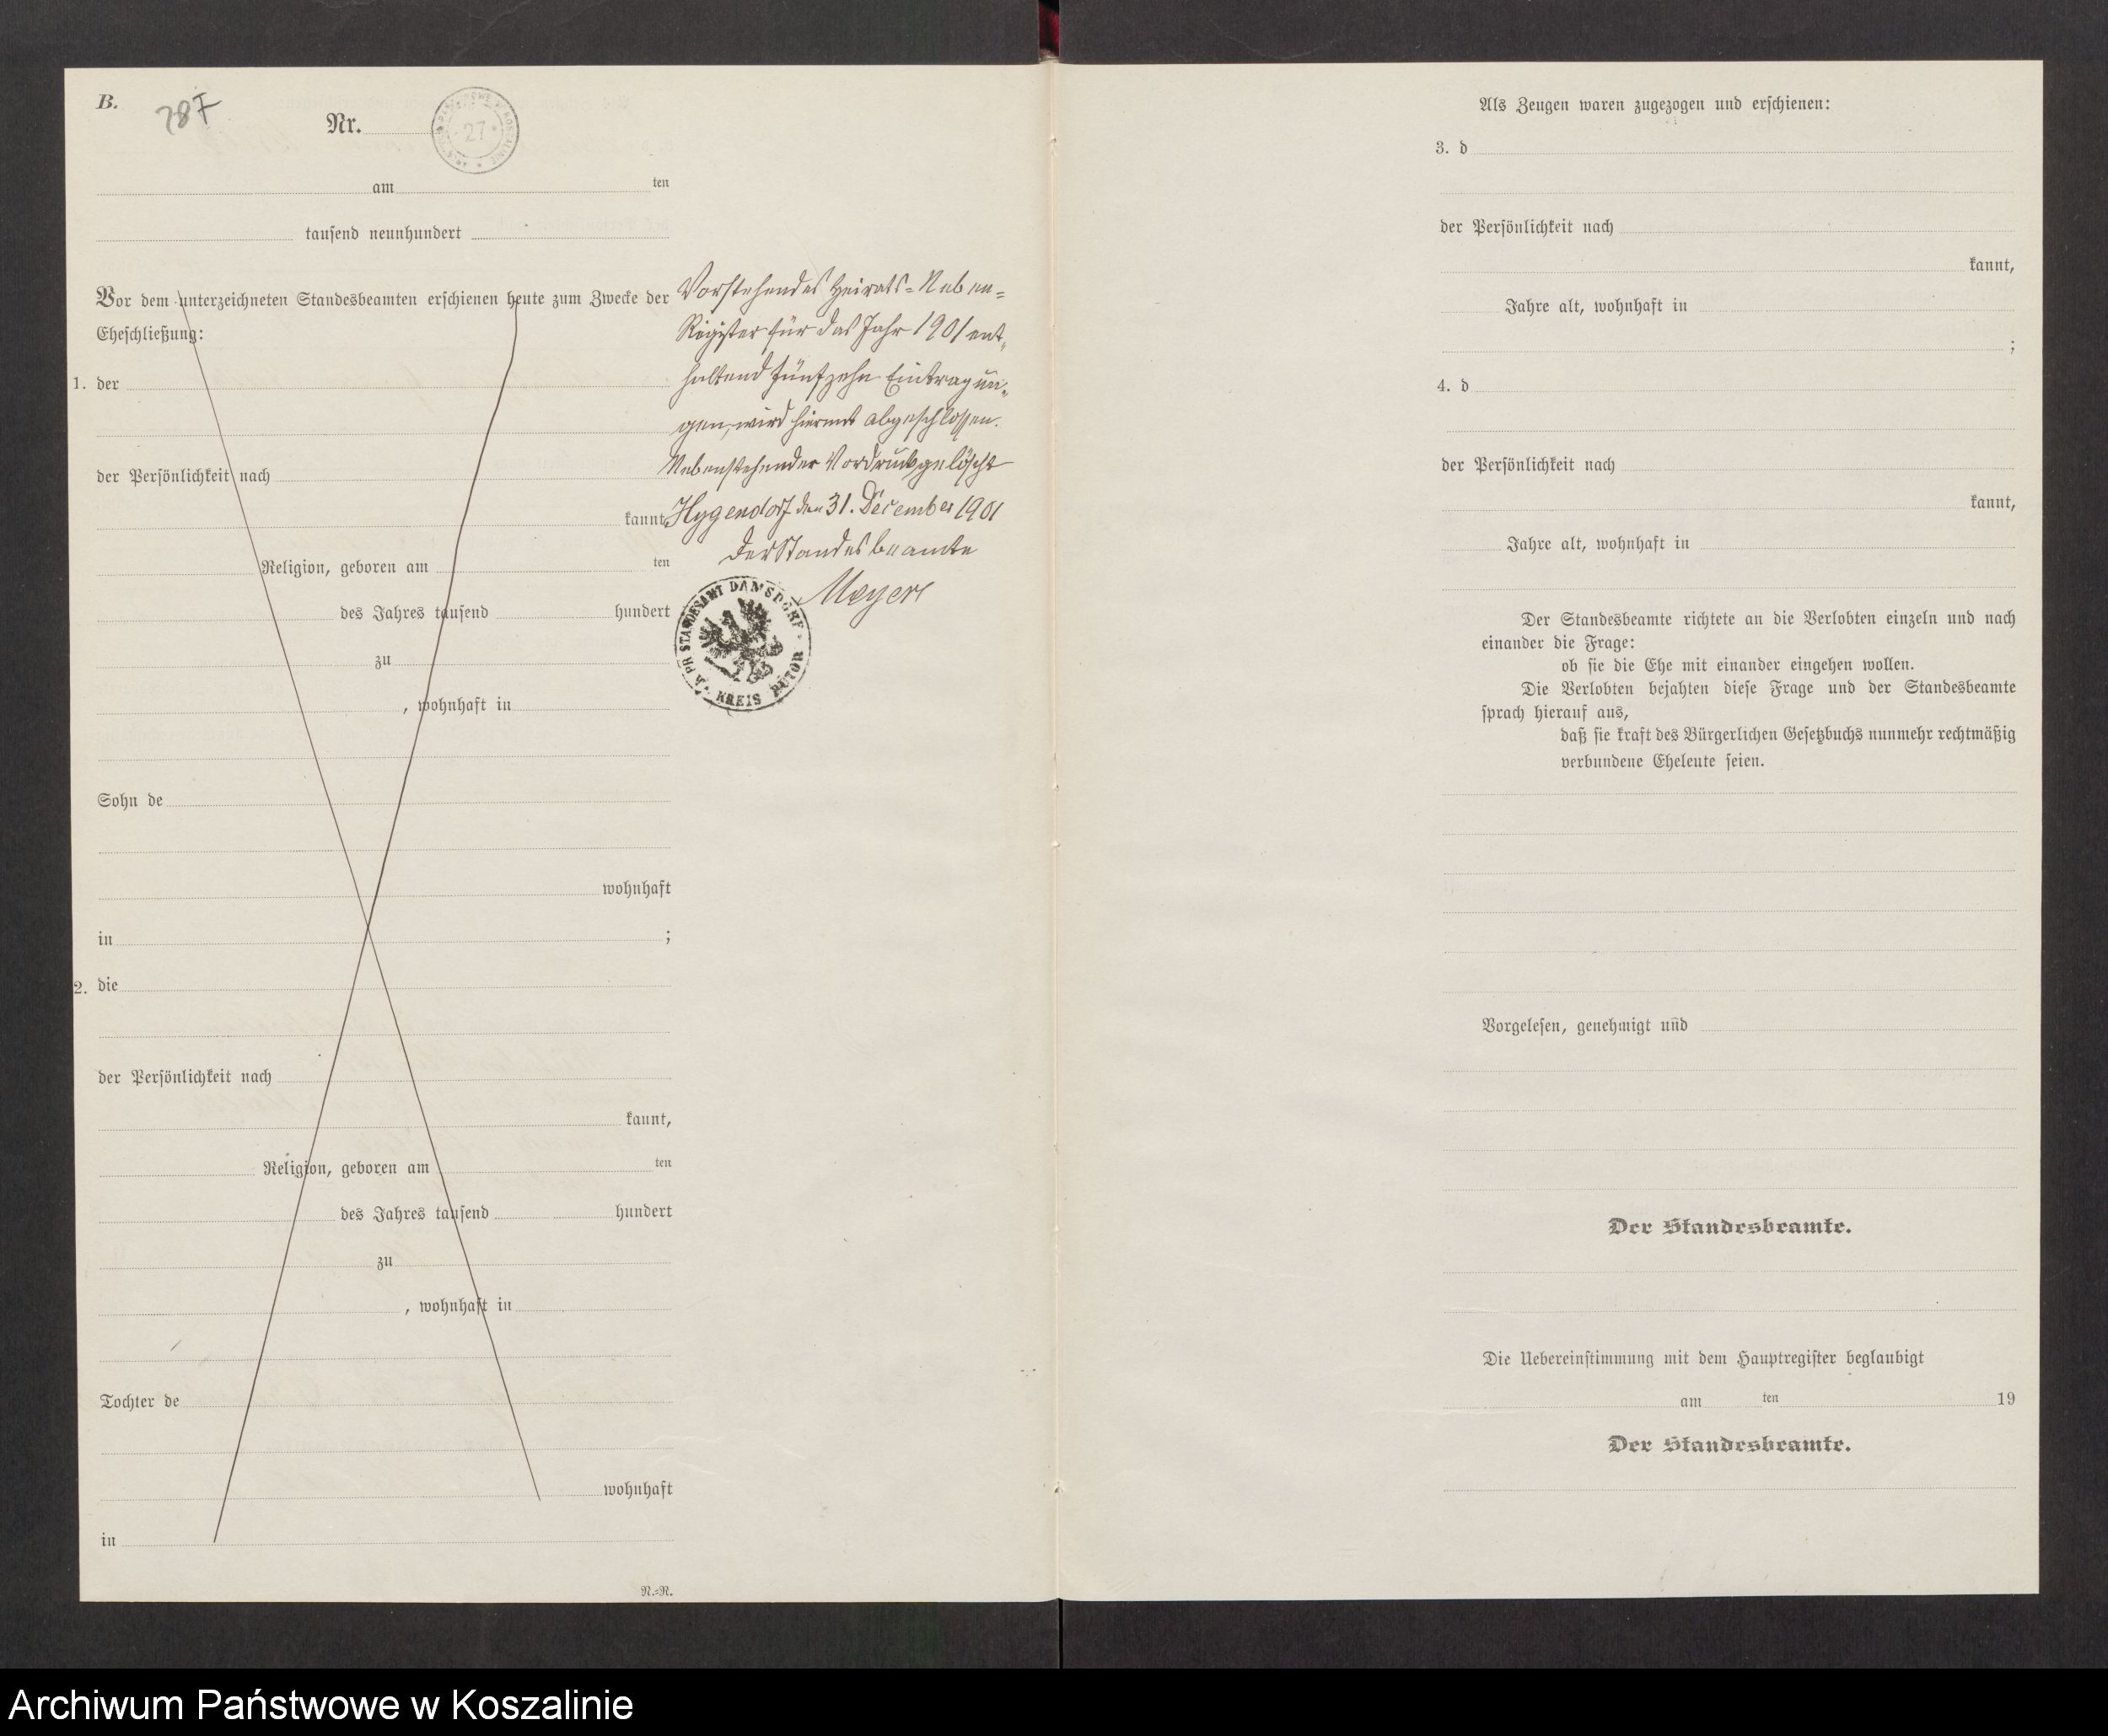 B.
287
Nr.
27
am ten
tausend neunhundert
Vor dem unterzeichneten Standesbeamten erschienen heute zum Zwecke der
Eheschließung:
1. der
der Persönlichkeit nach
kannt,
Religion, geboren am ten
des Jahres tausend hundert
zu
, wohnhaft in
Sohn de
wohnhaft
in ;
2. die
der Persönlichkeit nach
kannt,
Religion, geboren am ten
des Jahres tausend hundert
zu
, wohnhaft in
Tochter de
wohnhaft
in
N.=N.
Vorstehendes Heirats=Neben=
Register für das Jahr 1901 ent=
haltend fünfzehn Eintragun=
gen, wird hiermit abgeschlossen.
Nebenstehender Vordruck gelöscht
Hygendorf den 31. December 1901
Der Standesbeamte
Meyer
K. PR. STANDESAMT DAMSDORF
KREIS BÜTOW
Als Zeugen waren zugezogen und erschienen:
3. d
der Persönlichkeit nach
kannt,
Jahre alt, wohnhaft in
;
4. d
der Persönlichkeit nach
kannt,
Jahre alt, wohnhaft in
Der Standesbeamte richtete an die Verlobten einzeln und nach
einander die Frage:
ob sie die Ehe mit einander eingehen wollen.
Die Verlobten bejahten diese Frage und der Standesbeamte
sprach hierauf aus,
daß sie kraft des Bürgerlichen Gesetzbuchs nunmehr rechtmäßig
verbundene Eheleute seien.
Vorgelesen, genehmigt und
Der Standesbeamte.
Die Uebereinstimmung mit dem Hauptregister beglaubigt
am ten 19
Der Standesbeamte.
Archiwum Państwowe w Koszalinie